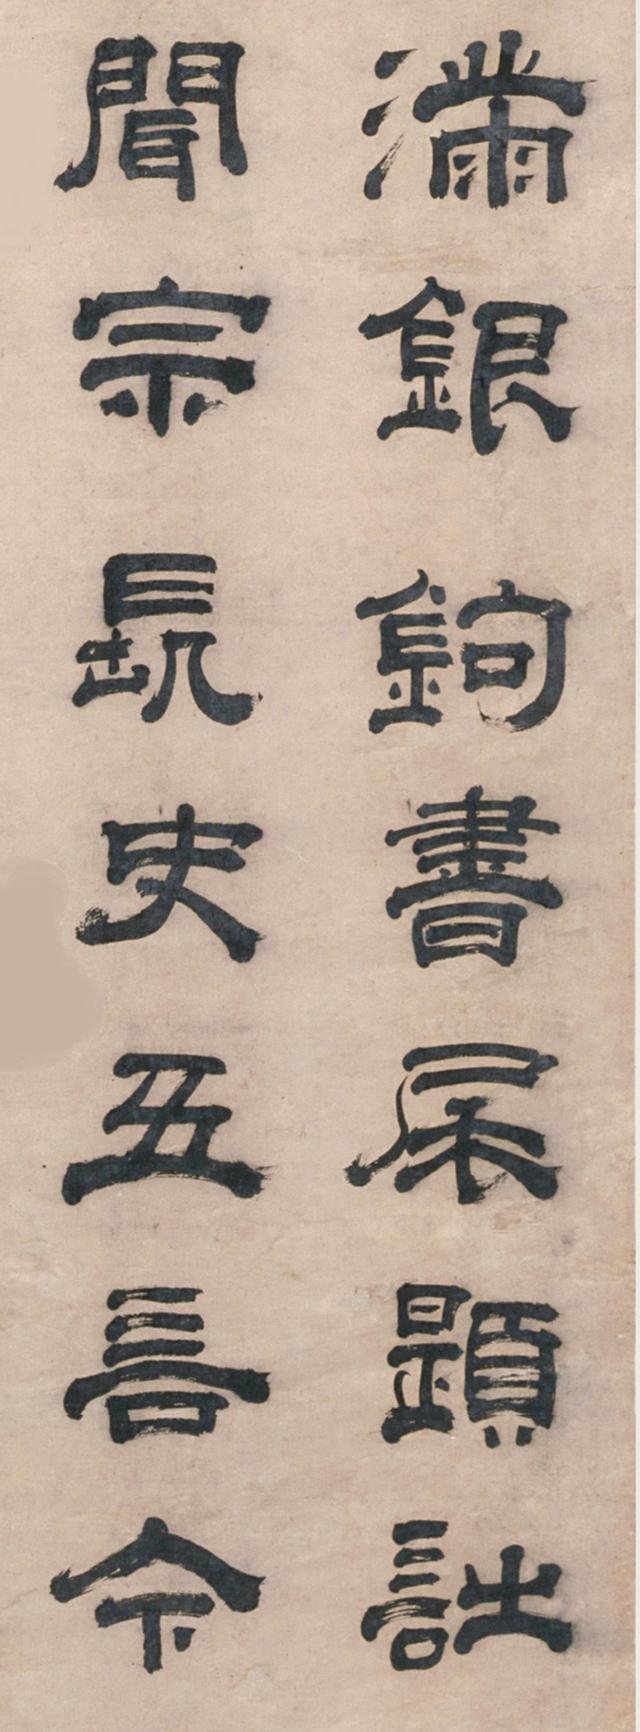 滿銀鉤書尾題詩
聞宗長史五言令